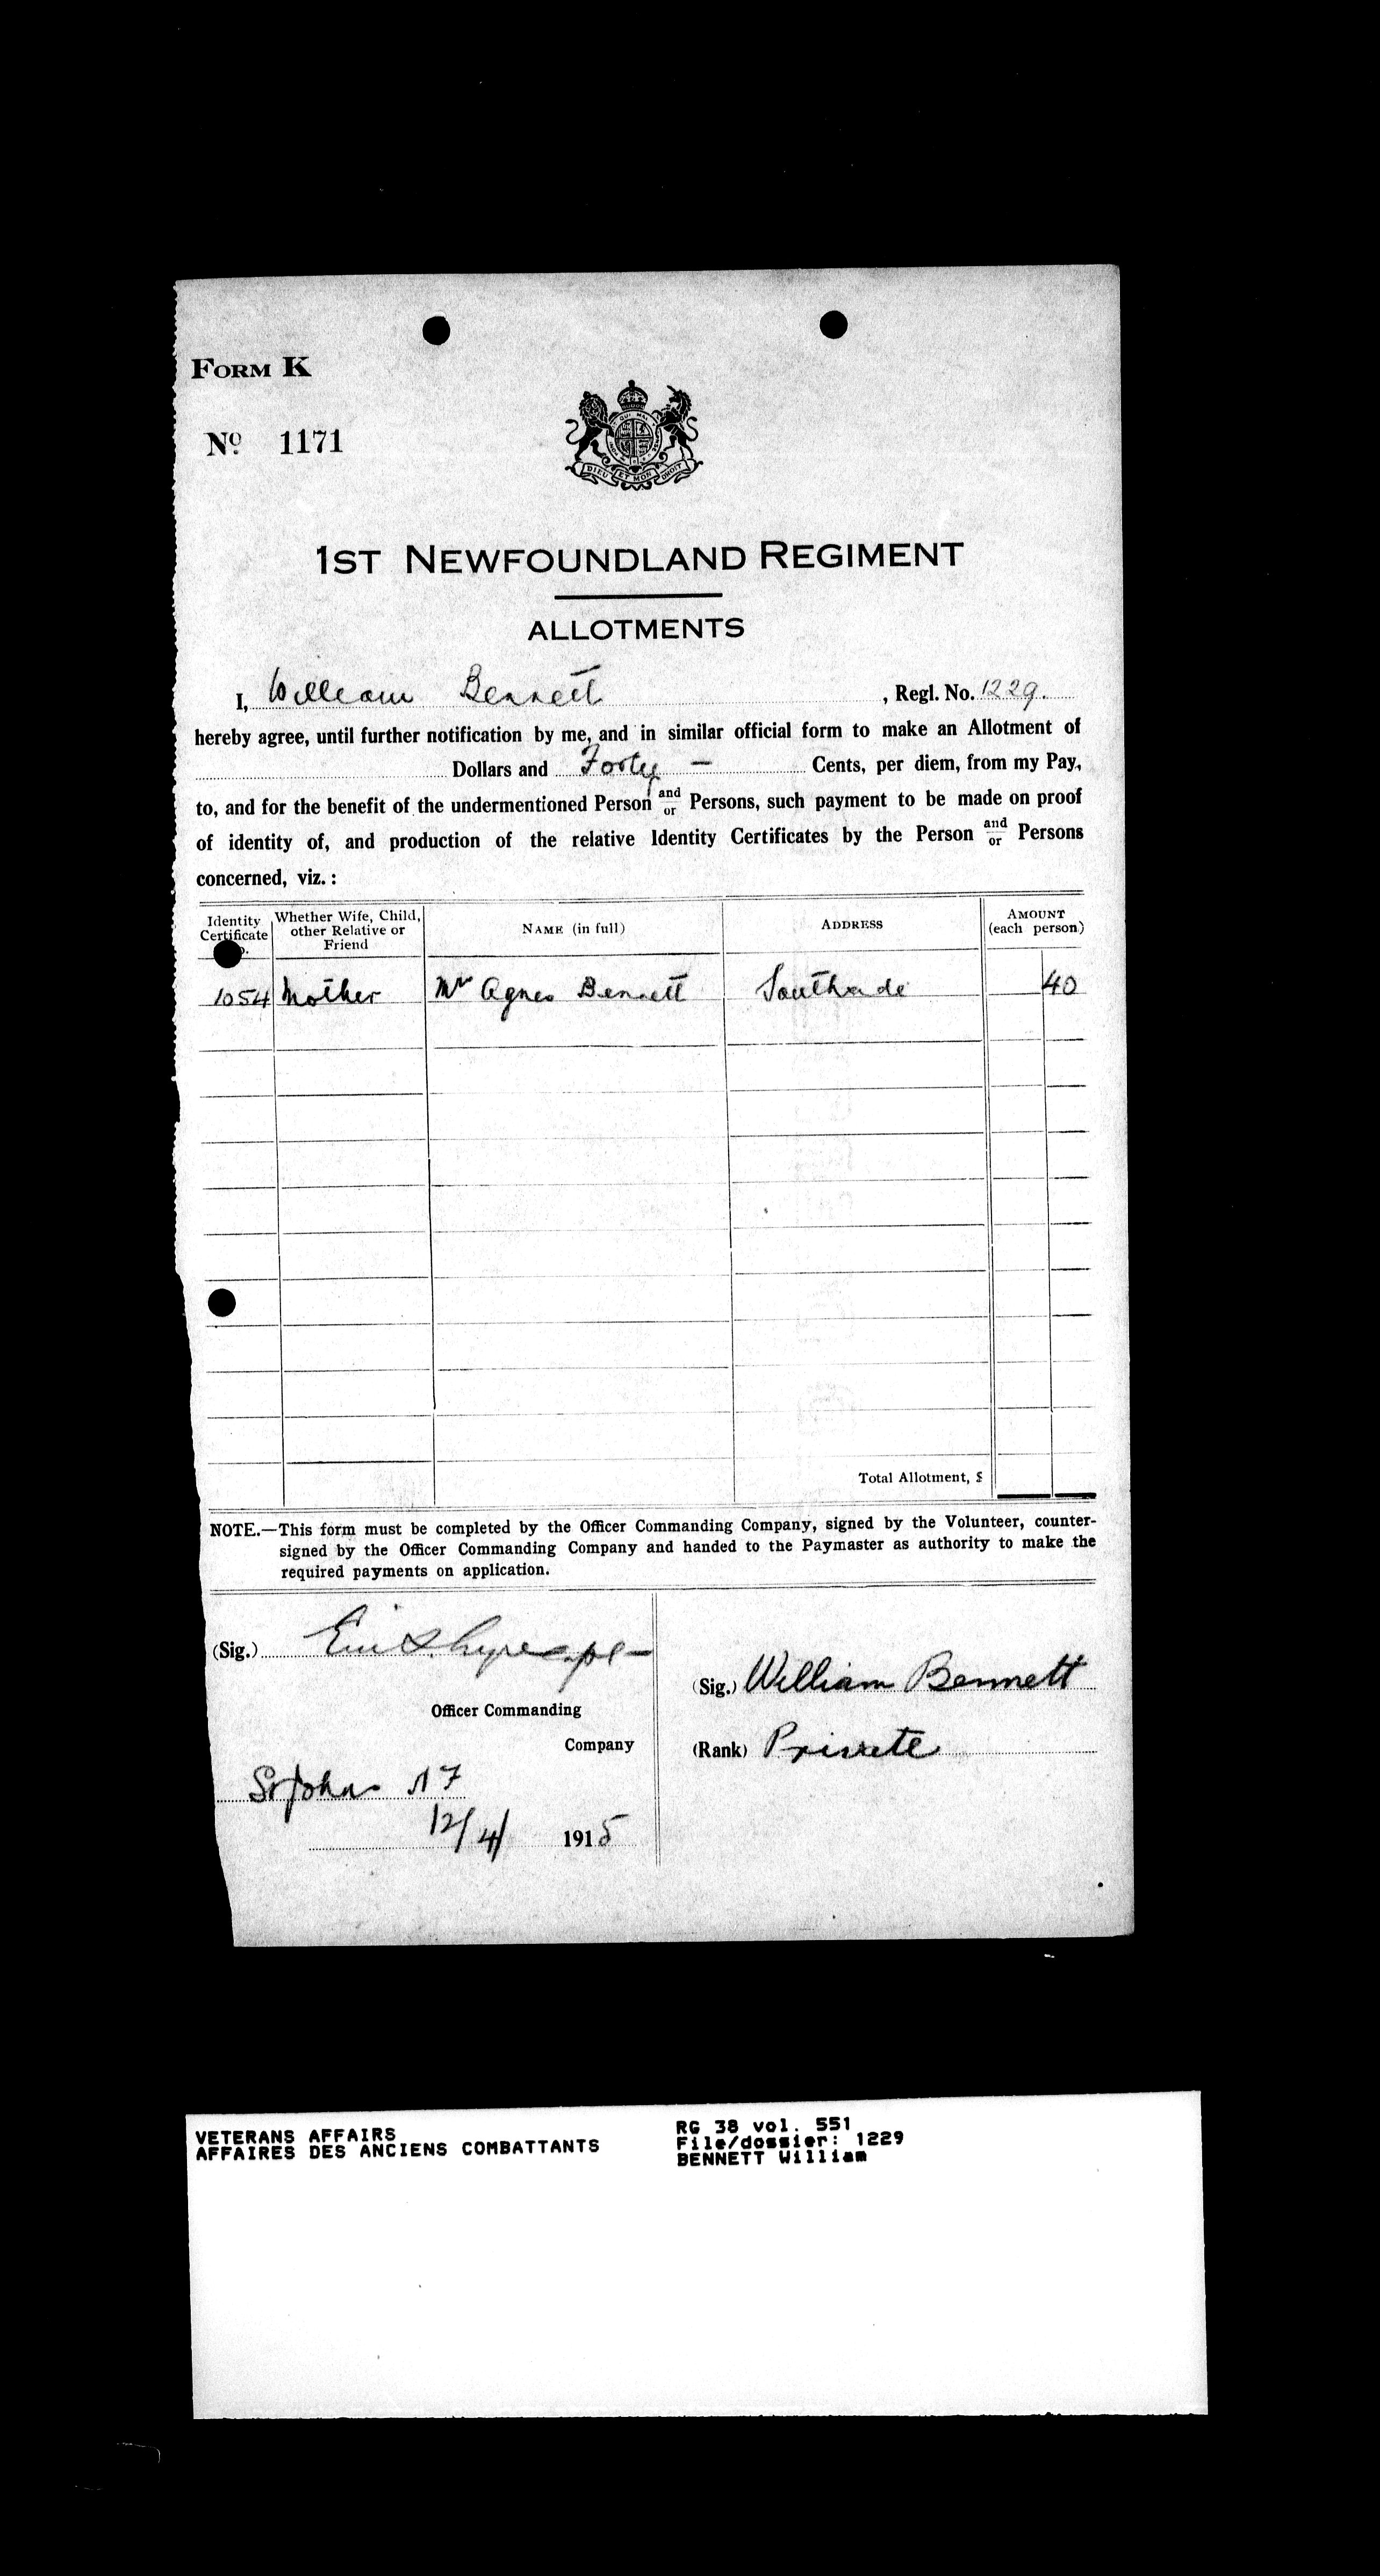 FORM K
No. 1171
DIEU ET MON DROIT
1ST NEWFOUNDLAND REGIMENT
ALLOTMENTS
I, William Bennett, Regl. No. 1229.
hereby agree, until further notification by me, and in similar official form to make an Allotment of
Dollars and Forty — Cents, per diem, from my Pay,
to, and for the benefit of the undermentioned Person and/or Persons, such payment to be made on proof
of identity of, and production of the relative Identity Certificates by the Person and/or Persons
concerned, viz.:
Identity Certificate | Whether Wife, Child, other Relative or Friend | NAME (in full) | ADDRESS | AMOUNT (each person)
1054 | Mother | Mrs Agnes Bennett | Southside | 40
Total Allotment, $
NOTE.—This form must be completed by the Officer Commanding Company, signed by the Volunteer, counter-
signed by the Officer Commanding Company and handed to the Paymaster as authority to make the
required payments on application.
(Sig.)
Officer Commanding
Company
St John's NF
12/4/ 1915
(Sig.) William Bennett
(Rank) Private
VETERANS AFFAIRS
AFFAIRES DES ANCIENS COMBATTANTS
RG 38 vol. 551
File/dossier: 1229
BENNETT William